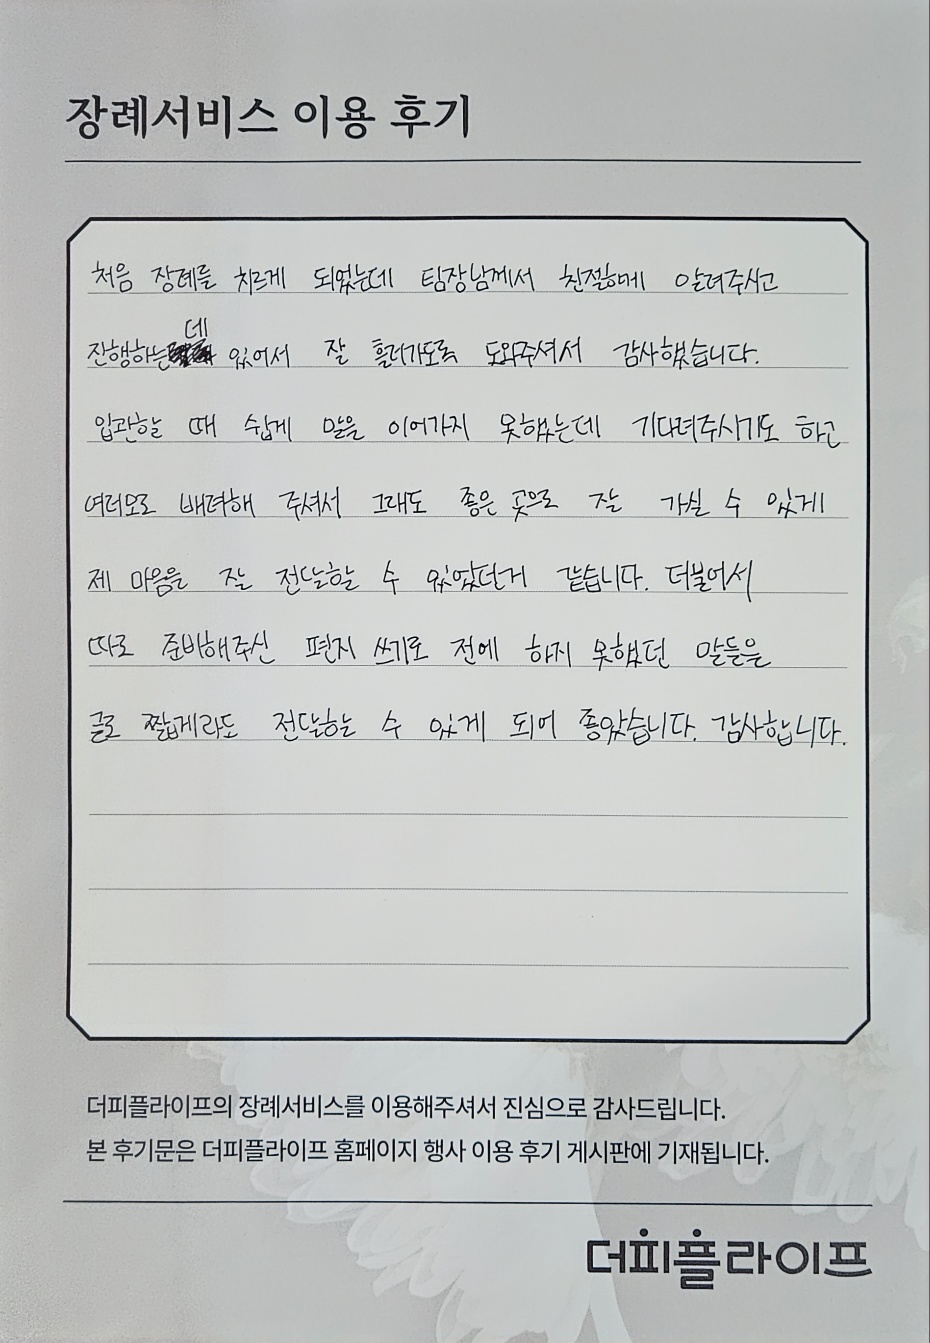 장례서비스 이용 후기
처음 장례를 치르게 되었는데 팀장님께서 친절하게 알려주시고
진행하는데 있어서 잘 흘러가도록 도와주셔서 감사했습니다.
입관할 때 쉽게 말을 이어가지 못했는데 기다려주시기도 하고
여러모로 배려해 주셔서 그래도 좋은 곳으로 잘 가실 수 있게
제 마음을 잘 전달할 수 있었던거 같습니다. 더불어서
따로 준비해주신 편지 쓰기로 전에 하지 못했던 말들을
글로 짧게라도 전달하는 수 있게 되어 좋았습니다. 감사합니다.
더피플라이프의 장례서비스를 이용해주셔서 진심으로 감사드립니다.
본 후기문은 더피플라이프 홈페이지 행사 이용 후기 게시판에 기재됩니다.
더피플라이프